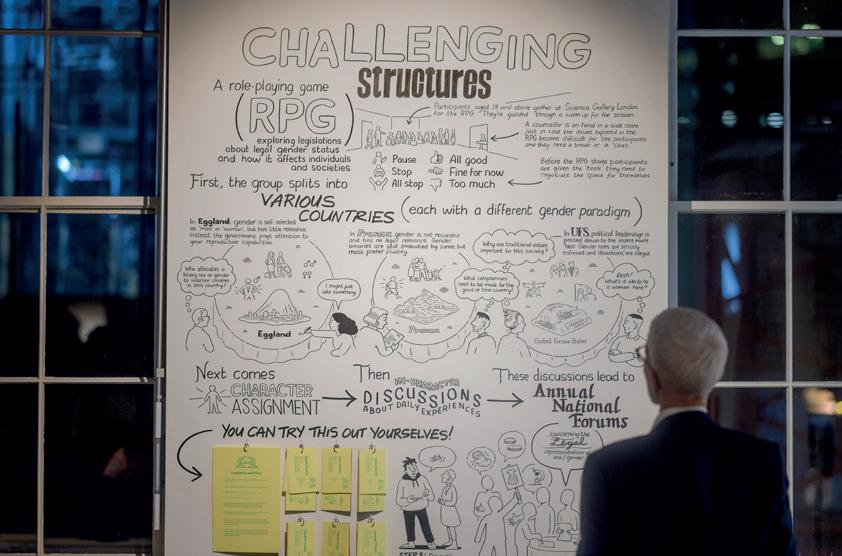 CHALLENGING
structures
A role-playing game
(RPG)
exploring legislations
about legal gender status
and how it affects individuals
and societies
Participants aged 18 and above gather at Science Gallery London
for the RPG. They're guided through a warm up for the session.
A counsellor is on hand in a side room
just in case the issues explored in the
RPG become difficult for the participants
and they need a break or a chat.
Pause
Stop
All stop
All good
Fine for now
Too much
Before the RPG starts participants
are given the 'tools' they need to
negotiate the space for themselves
First, the group splits into
VARIOUS
COUNTRIES
(each with a different gender paradigm)
In Eggland, gender is self-selected
as 'man' or 'woman', but has little relevance.
Instead, the government pays attention to
your reproductive capabilities.
Who allocates a
binary sex or gender
to intersex children
in this country?
I might just
add something
Eggland
In
gender is not recorded
and has no legal relevance. Gender
binaries are still embodied by some but
most prefer fluidity.
What compromises
need to be made for the
good of this country?
Why are traditional values
important for this society?
In UFS, political leadership is
passed down to the eldest male
heir. Gender roles are strictly
enforced and 'deviations' are illegal.
what's it like to be
a woman here?
United Force States
Next comes
CHARACTER
ASSIGNMENT
Then
IN-CHARACTER
DISCUSSIONS
ABOUT DAILY EXPERIENCES
These discussions lead to
Annual
National
Forums
YOU CAN TRY THIS OUT YOURSELVES!
concerning the
Legal
representation of
sex/gender